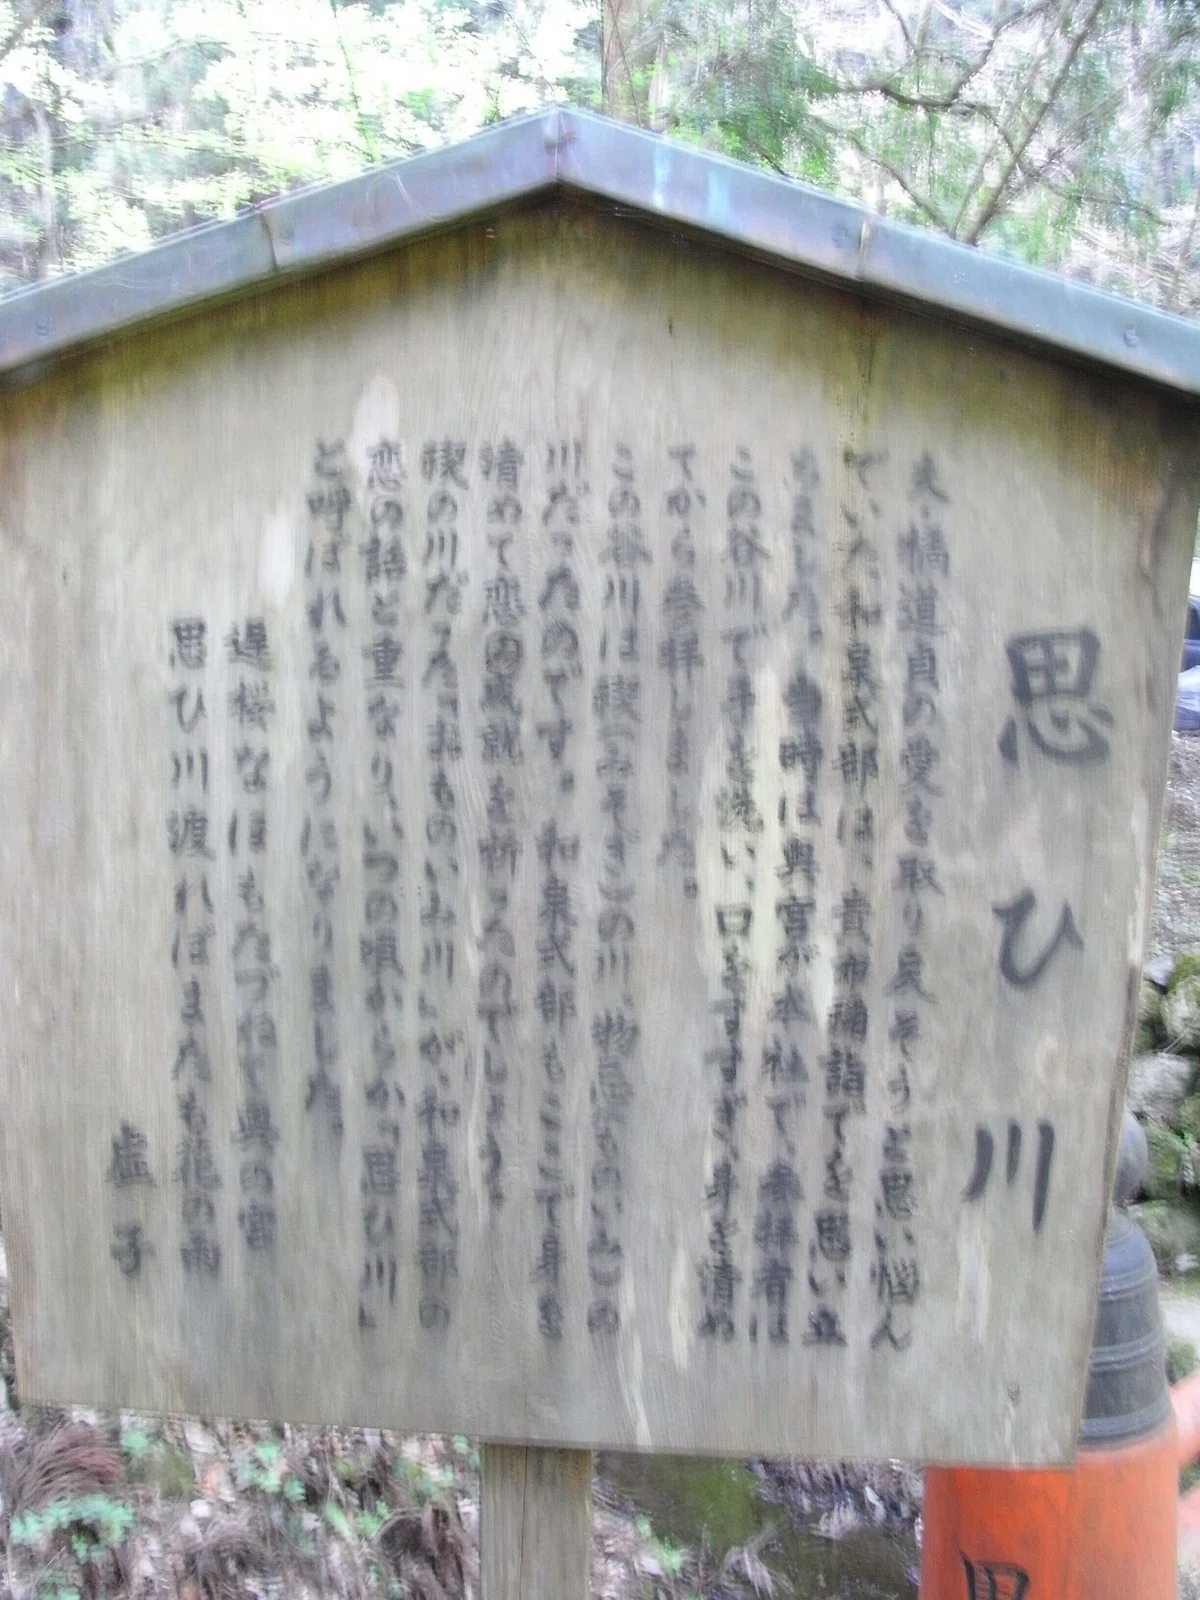 思ひ川
夫・橋道貞の愛を取り戻そうと思い悩ん
でいた和泉式部は、貴布禰詣でを思い立
ちました。当時は奥宮が本社で、参拝者は
この谷川で手を洗い、口をすすぎ、身を清め
てから参拝しました。
この谷川は禊(みそぎ)の川、物忌(ものいみ)の
川だったのです。和泉式部もここで身を
清めて恋の成就を祈ったのでしょう。
禊の川だった「おものいみ川」が、和泉式部の
恋の話と重なり、いつの頃からか「思ひ川」
と呼ばれるようになりました。
遅桜なほもたづねて奥の宮
思ひ川渡ればまたも花の雨
虚子
思